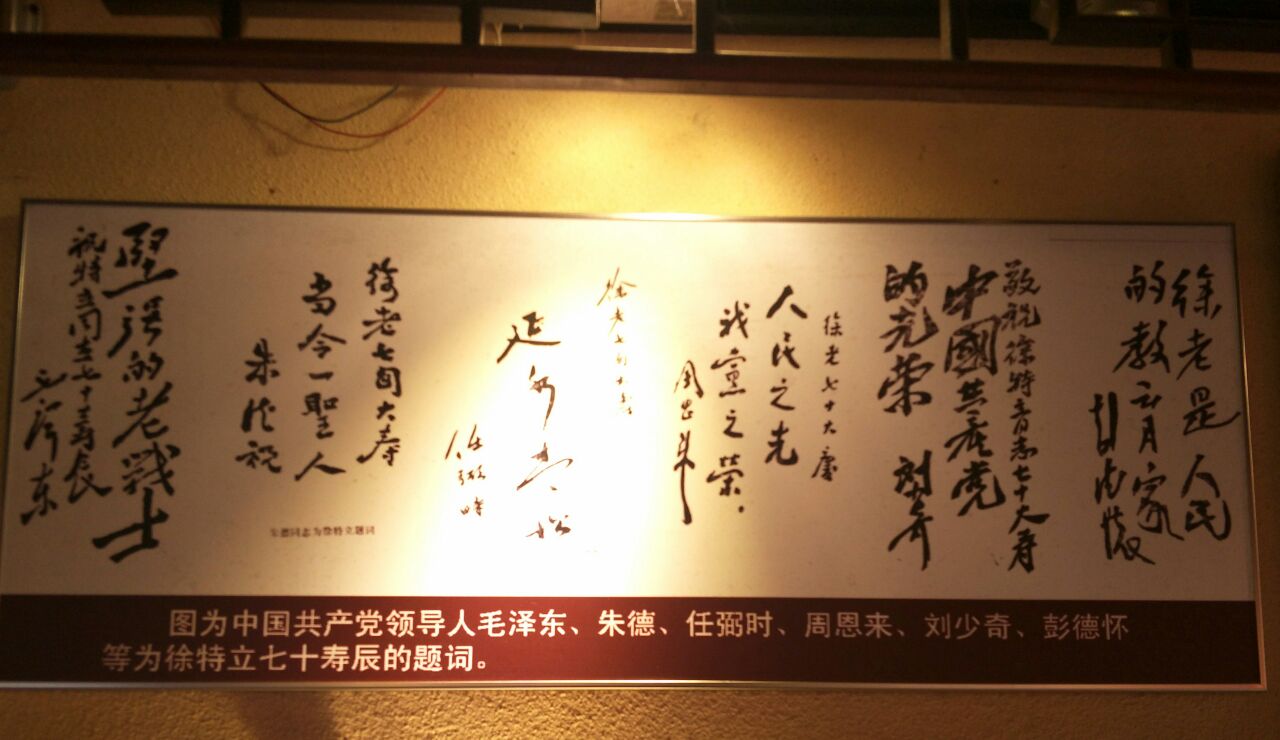 徐老是人民
的教育家
彭德怀
敬祝徐特立同志七十大寿
中國共产党
的光荣
刘少奇
徐老七十大慶
人民之光
我黨之荣。
周恩来
徐老七旬大寿
延年 松
任弼时
徐老七旬大寿
当今一聖人
朱德祝
朱德同志为徐特立题词
堅强的老戰士
祝特立同志七十 寿辰
毛泽东
图为中国共产党领导人毛泽东、朱德、任弼时、周恩来、刘少奇、彭德怀
等为徐特立七十寿辰的题词。